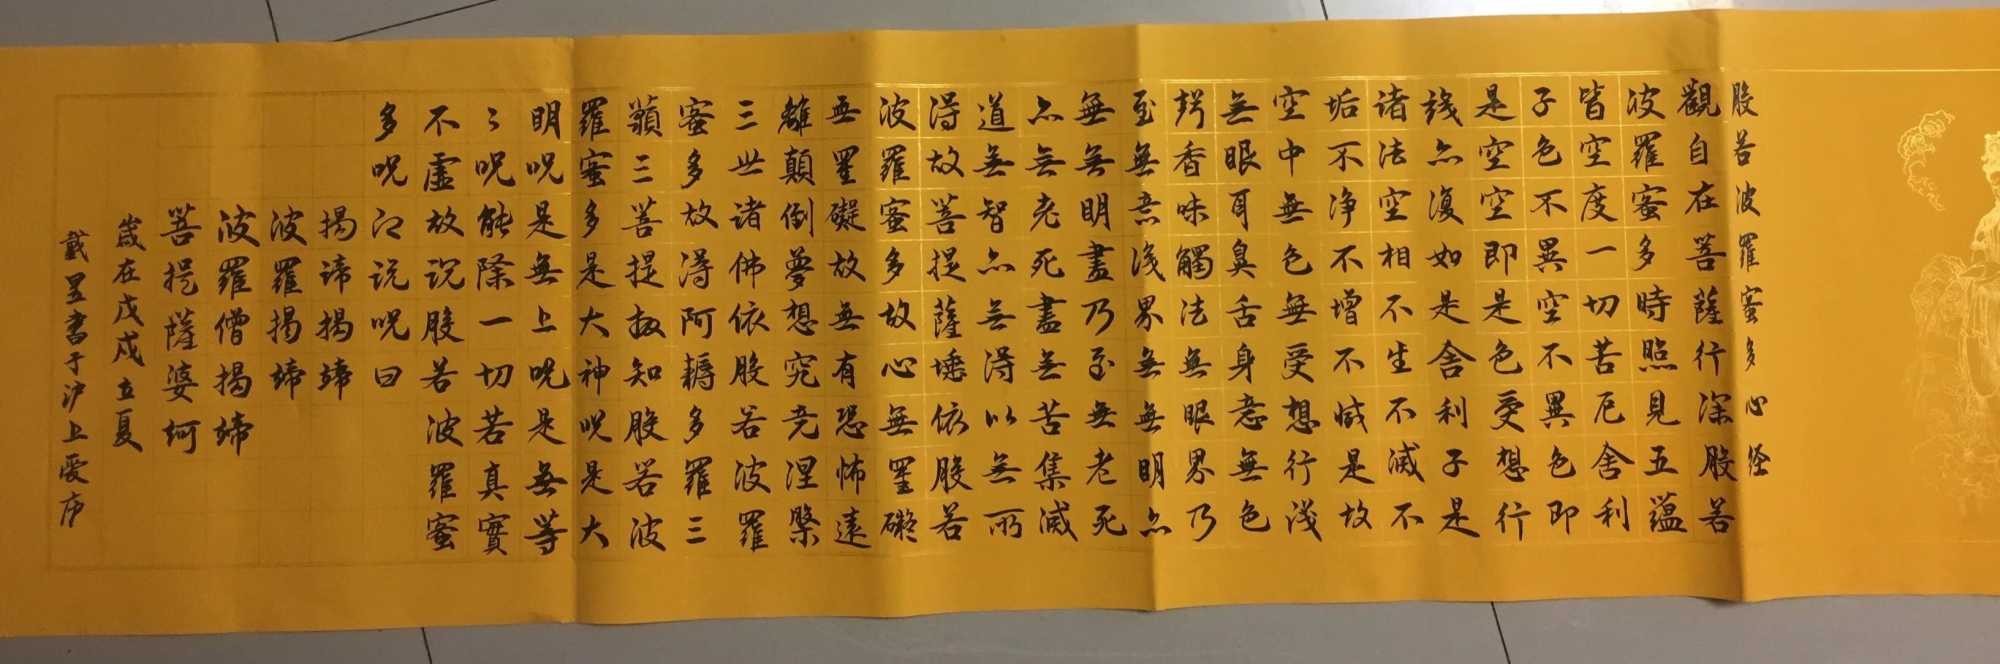 般若波羅蜜多心经
觀自在菩薩行深般若
波羅蜜多時照見五蘊
皆空度一切苦厄舍利
子色不異空不異色即
是空空即是色受想行
識亦復如是舍利子是
诸法空相不生不滅不
垢不净不增不减是故
空中無色無受想行識
無眼耳鼻舌身意無色
聲香味觸法無眼界乃
至無意識界無無明亦
無無明盡乃至無老死
亦无老死盡无苦集滅
道无智亦無得以無所
得故菩提薩埵依般若
波羅蜜多故心無罣礙
无罣礙故無有恐怖遠
離顛倒夢想究竟涅槃
三世诸佛依般若波羅
蜜多故得阿耨多羅三
藐三菩提故知般若波
羅蜜多是大神呪是大
明呪是無上呪是無等
々呪能除一切苦真實
不虛故说般若波羅蜜
多呪即说呪曰
揭谛揭谛
波羅揭谛
波羅僧揭谛
菩提薩婆訶
歲在戊戌立夏
戴昱書于沪上